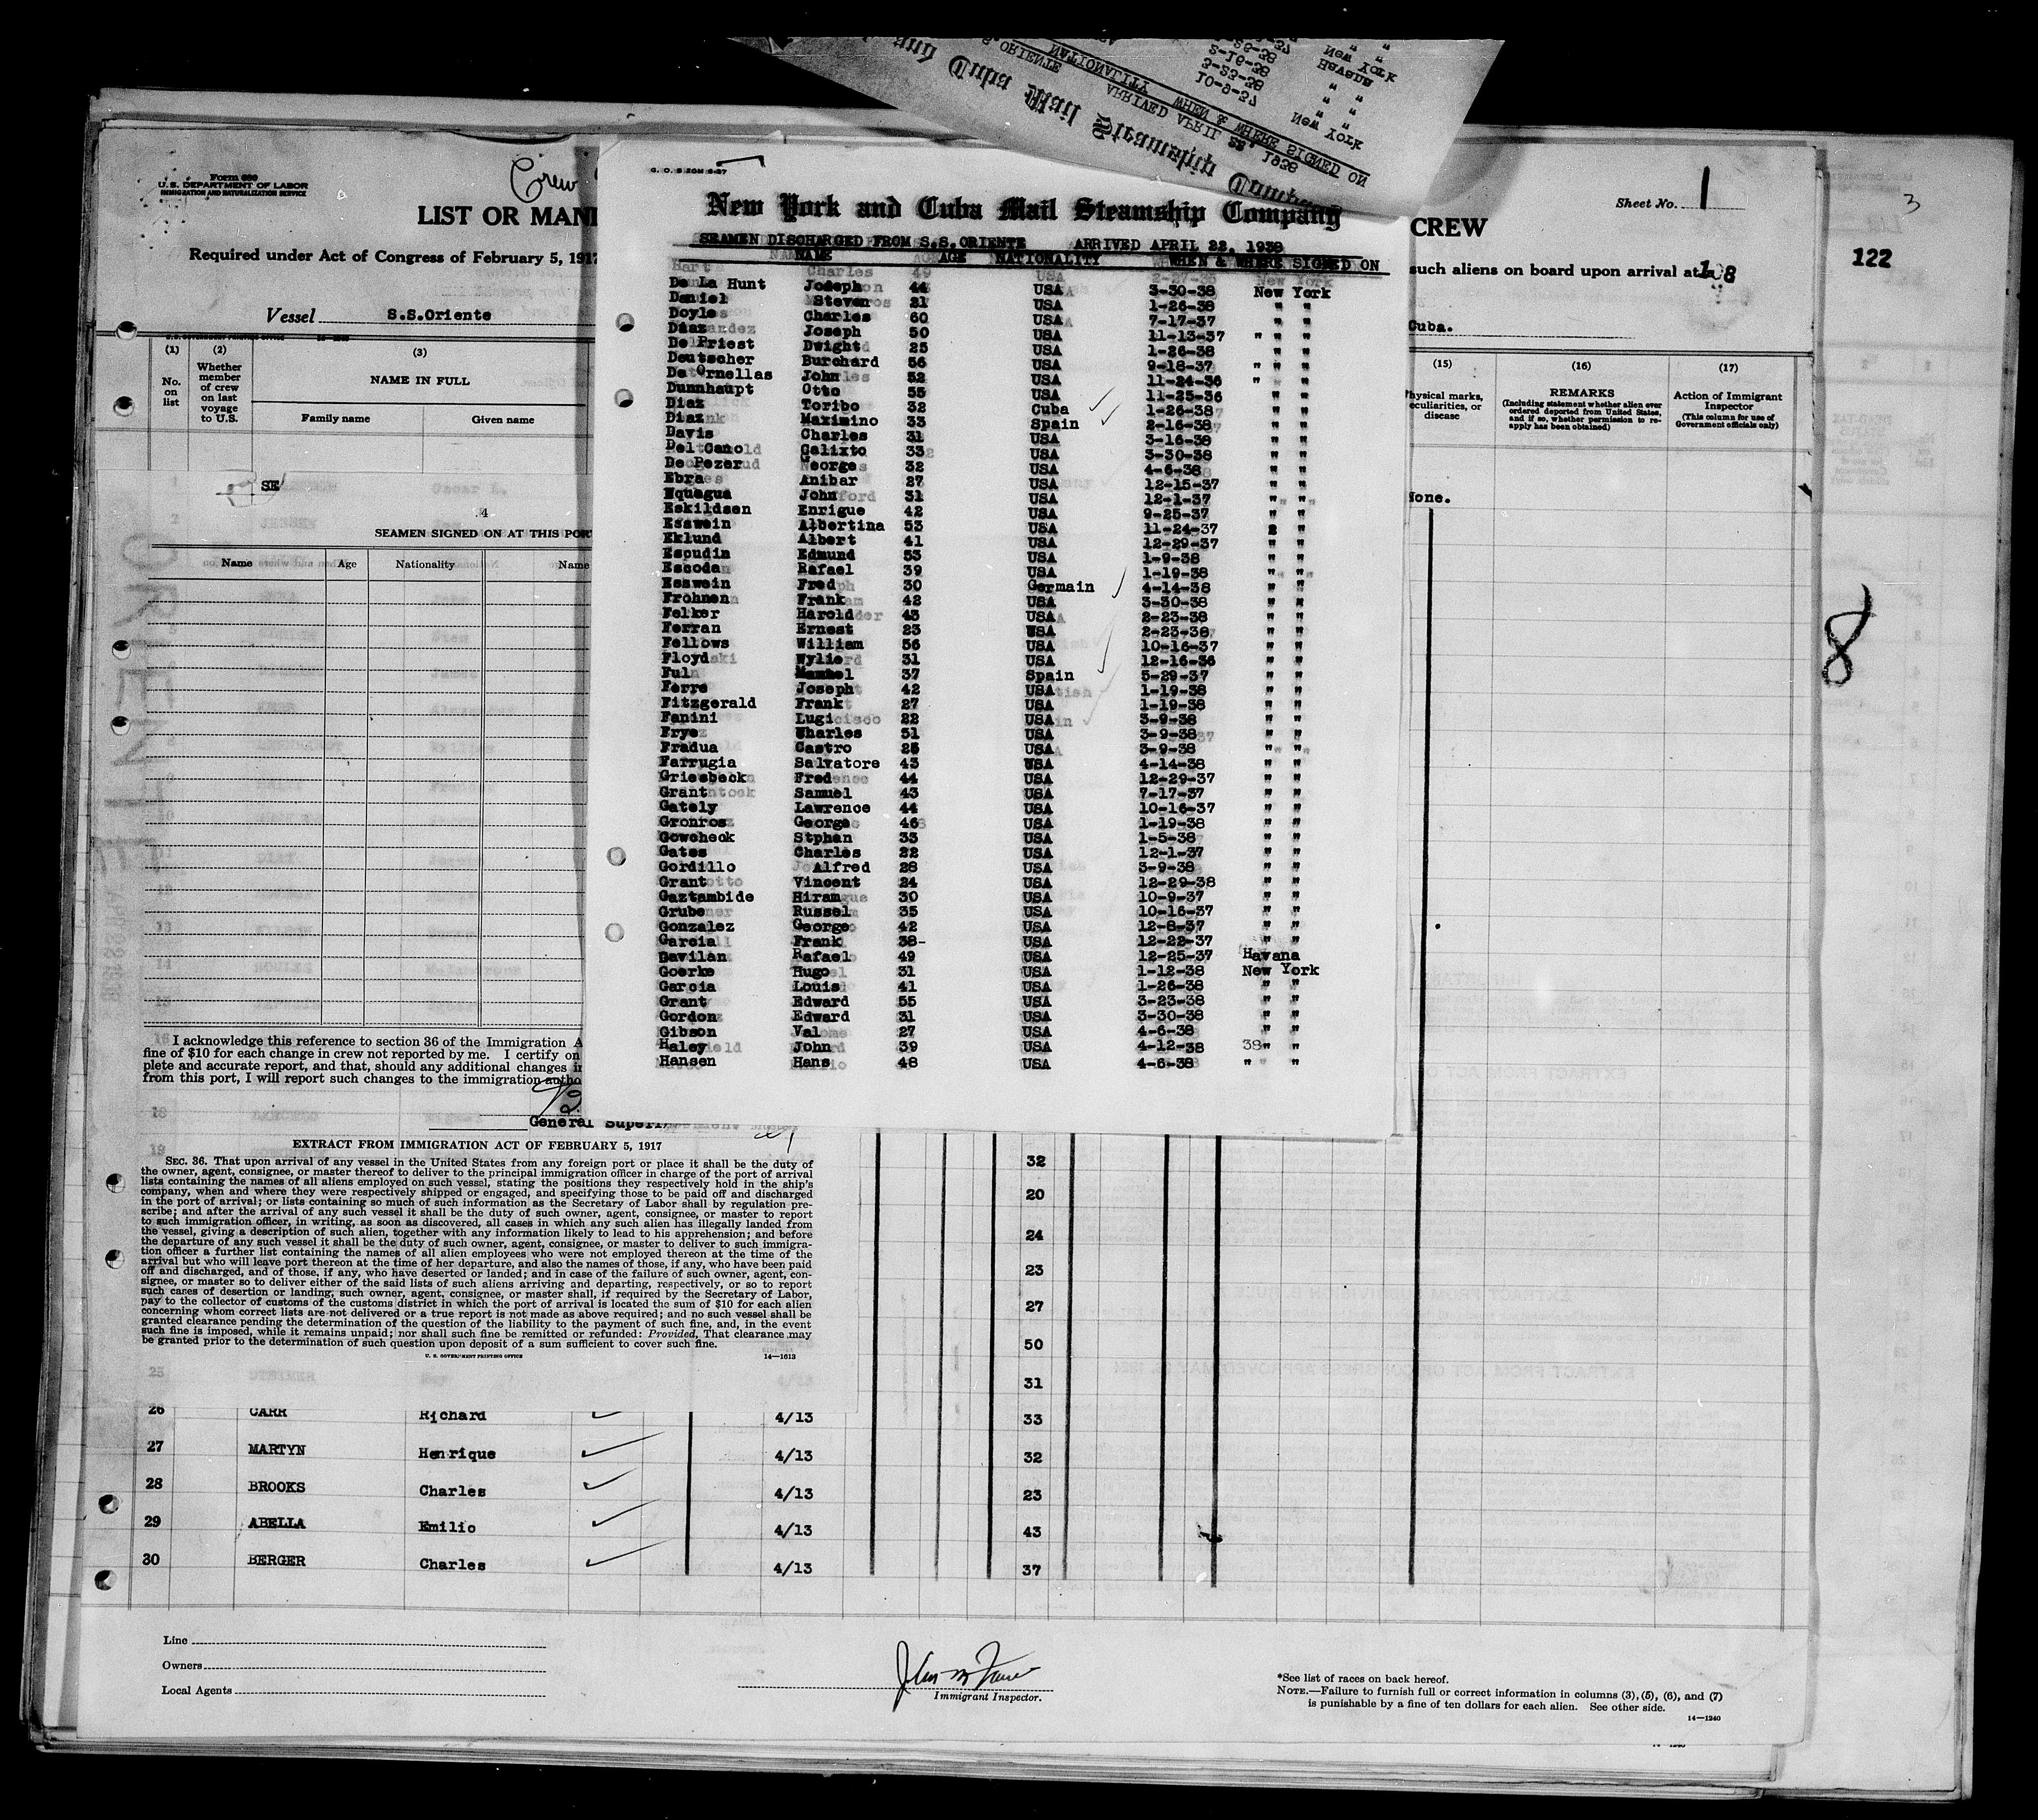 Form 680
U. S. DEPARTMENT OF LABOR
IMMIGRATION AND NATURALIZATION SERVICE
Crew
LIST OR MANI
CREW
Sheet No. 1
3
122
Required under Act of Congress of February 5, 1917
such aliens on board upon arrival at
Vessel S.S.Oriente
Cuba.
(1) (2) (3)
No. on list
Whether member of crew on last voyage to U.S.
NAME IN FULL
Family name Given name
(15) (16) (17)
hysical marks, eculiarities, or disease
REMARKS
(Including statement whether alien ever ordered deported from United States, and if so, whether permission to re-apply has been obtained)
Action of Immigrant Inspector
(This column for use of Government officials only)
None.
8
SE
4
SEAMEN SIGNED ON AT THIS POR
Name Age Nationality Name
New York and Cuba Mail Steamship Company
SEAMEN DISCHARGED FROM S.S.ORIENTE ARRIVED APRIL 22, 1938
NAME AGE NATIONALITY WHEN & WHERE SIGNED ON
De La Hunt Joseph 44 USA 3-30-38 New York
Daniel Steven 21 USA 1-26-38 " "
Doyle Charles 60 USA 7-17-37 " "
Diaz Joseph 50 USA 11-13-37 " " "
De Priest Dwight 25 USA 1-26-38 " "
Deutscher Burchard 56 USA 9-18-37 " " "
De Ornellas John 52 USA 11-24-36 " " "
Dunnhaupt Otto 55 USA 11-25-36 " "
Diaz Toribo 32 Cuba 1-26-38 " "
Diaz Maximino 33 Spain 2-16-38 " "
Davis Charles 31 USA 3-16-38 " "
Del Cano Calixto 33 USA 3-30-38 " "
De Pezer George 32 USA 4-6-38 " "
Ebra Anibar 27 USA 12-15-37 " "
Nquagua John 31 USA 12-1-37 " "
Eskildsen Enrigue 42 USA 9-25-37 " "
Esswein Albertina 53 USA 11-24-37 " "
Eklund Albert 41 USA 12-29-37 " "
Espudin Edmund 53 USA 1-9-38 " "
Escoda Rafael 39 USA 1-19-38 " "
Esswein Fred 30 Germain 4-14-38 " "
Frohnen Frank 42 USA 3-30-38 " "
Felker Harold 43 USA 2-23-38 " "
Ferran Ernest 23 USA 2-23-38 " "
Fellows William 56 USA 10-16-37 " "
Floyd Wylie 31 USA 12-16-36 " "
Ful Manuel 37 Spain 5-29-37 " "
Ferre Joseph 42 USA 1-19-38 " "
Fitzgerald Frank 27 USA 1-19-38 " "
Fanini Lugi 22 USA 3-9-38 " "
Frye Wharles 51 USA 3-9-38 " "
Fradua Castro 25 USA 3-9-38 " "
Farrugia Salvatore 43 USA 4-14-38 " "
Griesbeck Fred 44 USA 12-29-37 " "
Grant Samuel 43 USA 7-17-37 " "
Gately Lawrence 44 USA 10-16-37 " "
Gronros George 46 USA 1-19-38 " "
Gowcheck Stphan 33 USA 1-5-38 " "
Gates Charles 22 USA 12-1-37 " "
Gordillo Alfred 28 USA 3-9-38 " "
Grant Vincent 24 USA 12-29-38 " "
Gaztambide Hiram 30 USA 10-9-37 " "
Grube Russel 35 USA 10-16-37 " "
Gonzalez George 42 USA 12-8-37 " "
Garcia Frank 38- USA 12-22-37 " "
Davilan Rafael 49 USA 12-25-37 Havana
Goerke Hugo 31 USA 1-12-38 New York
Garcia Louis 41 USA 1-26-38 " "
Grant Edward 55 USA 3-23-38 " "
Gordon Edward 31 USA 3-30-38 " "
Gibson Val 27 USA 4-6-38 " "
Haley John 39 USA 4-12-38 " "
Hansen Hans 48 USA 4-6-38 " "
I acknowledge this reference to section 36 of the Immigration A
fine of $10 for each change in crew not reported by me. I certify on
plete and accurate report, and that, should any additional changes i
from this port, I will report such changes to the immigration autho
General Superi
EXTRACT FROM IMMIGRATION ACT OF FEBRUARY 5, 1917
SEC. 36. That upon arrival of any vessel in the United States from any foreign port or place it shall be the duty of
the owner, agent, consignee, or master thereof to deliver to the principal immigration officer in charge of the port of arrival
lists containing the names of all aliens employed on such vessel, stating the positions they respectively hold in the ship's
company, when and where they were respectively shipped or engaged, and specifying those to be paid off and discharged
in the port of arrival; or lists containing so much of such information as the Secretary of Labor shall by regulation pre-
scribe; and after the arrival of any such vessel it shall be the duty of such owner, agent, consignee, or master to report
to such immigration officer, in writing, as soon as discovered, all cases in which any such alien has illegally landed from
the vessel, giving a description of such alien, together with any information likely to lead to his apprehension; and before
the departure of any such vessel it shall be the duty of such owner, agent, consignee, or master to deliver to such immigra-
tion officer a further list containing the names of all alien employees who were not employed thereon at the time of the
arrival but who will leave port thereon at the time of her departure, and also the names of those, if any, who have been paid
off and discharged, and of those, if any, who have deserted or landed; and in case of the failure of such owner, agent, con-
signee, or master so to deliver either of the said lists of such aliens arriving and departing, respectively, or so to report
such cases of desertion or landing, such owner, agent, consignee, or master shall, if required by the Secretary of Labor,
pay to the collector of customs of the customs district in which the port of arrival is located the sum of $10 for each alien
concerning whom correct lists are not delivered or a true report is not made as above required; and no such vessel shall be
granted clearance pending the determination of the question of the liability to the payment of such fine, and, in the event
such fine is imposed, while it remains unpaid; nor shall such fine be remitted or refunded: Provided, That clearance may
be granted prior to the determination of such question upon deposit of a sum sufficient to cover such fine.
U. S. GOVERNMENT PRINTING OFFICE 14—1613
32
20
24
23
27
50
31
26 CARR Richard 4/13 33
27 MARTYN Henrique 4/13 32
28 BROOKS Charles 4/13 23
29 ABELLA Emilio 4/13 43
30 BERGER Charles 4/13 37
Line
Owners
Local Agents
Immigrant Inspector.
*See list of races on back hereof.
NOTE.—Failure to furnish full or correct information in columns (3), (5), (6), and (7)
is punishable by a fine of ten dollars for each alien. See other side.
14—1240